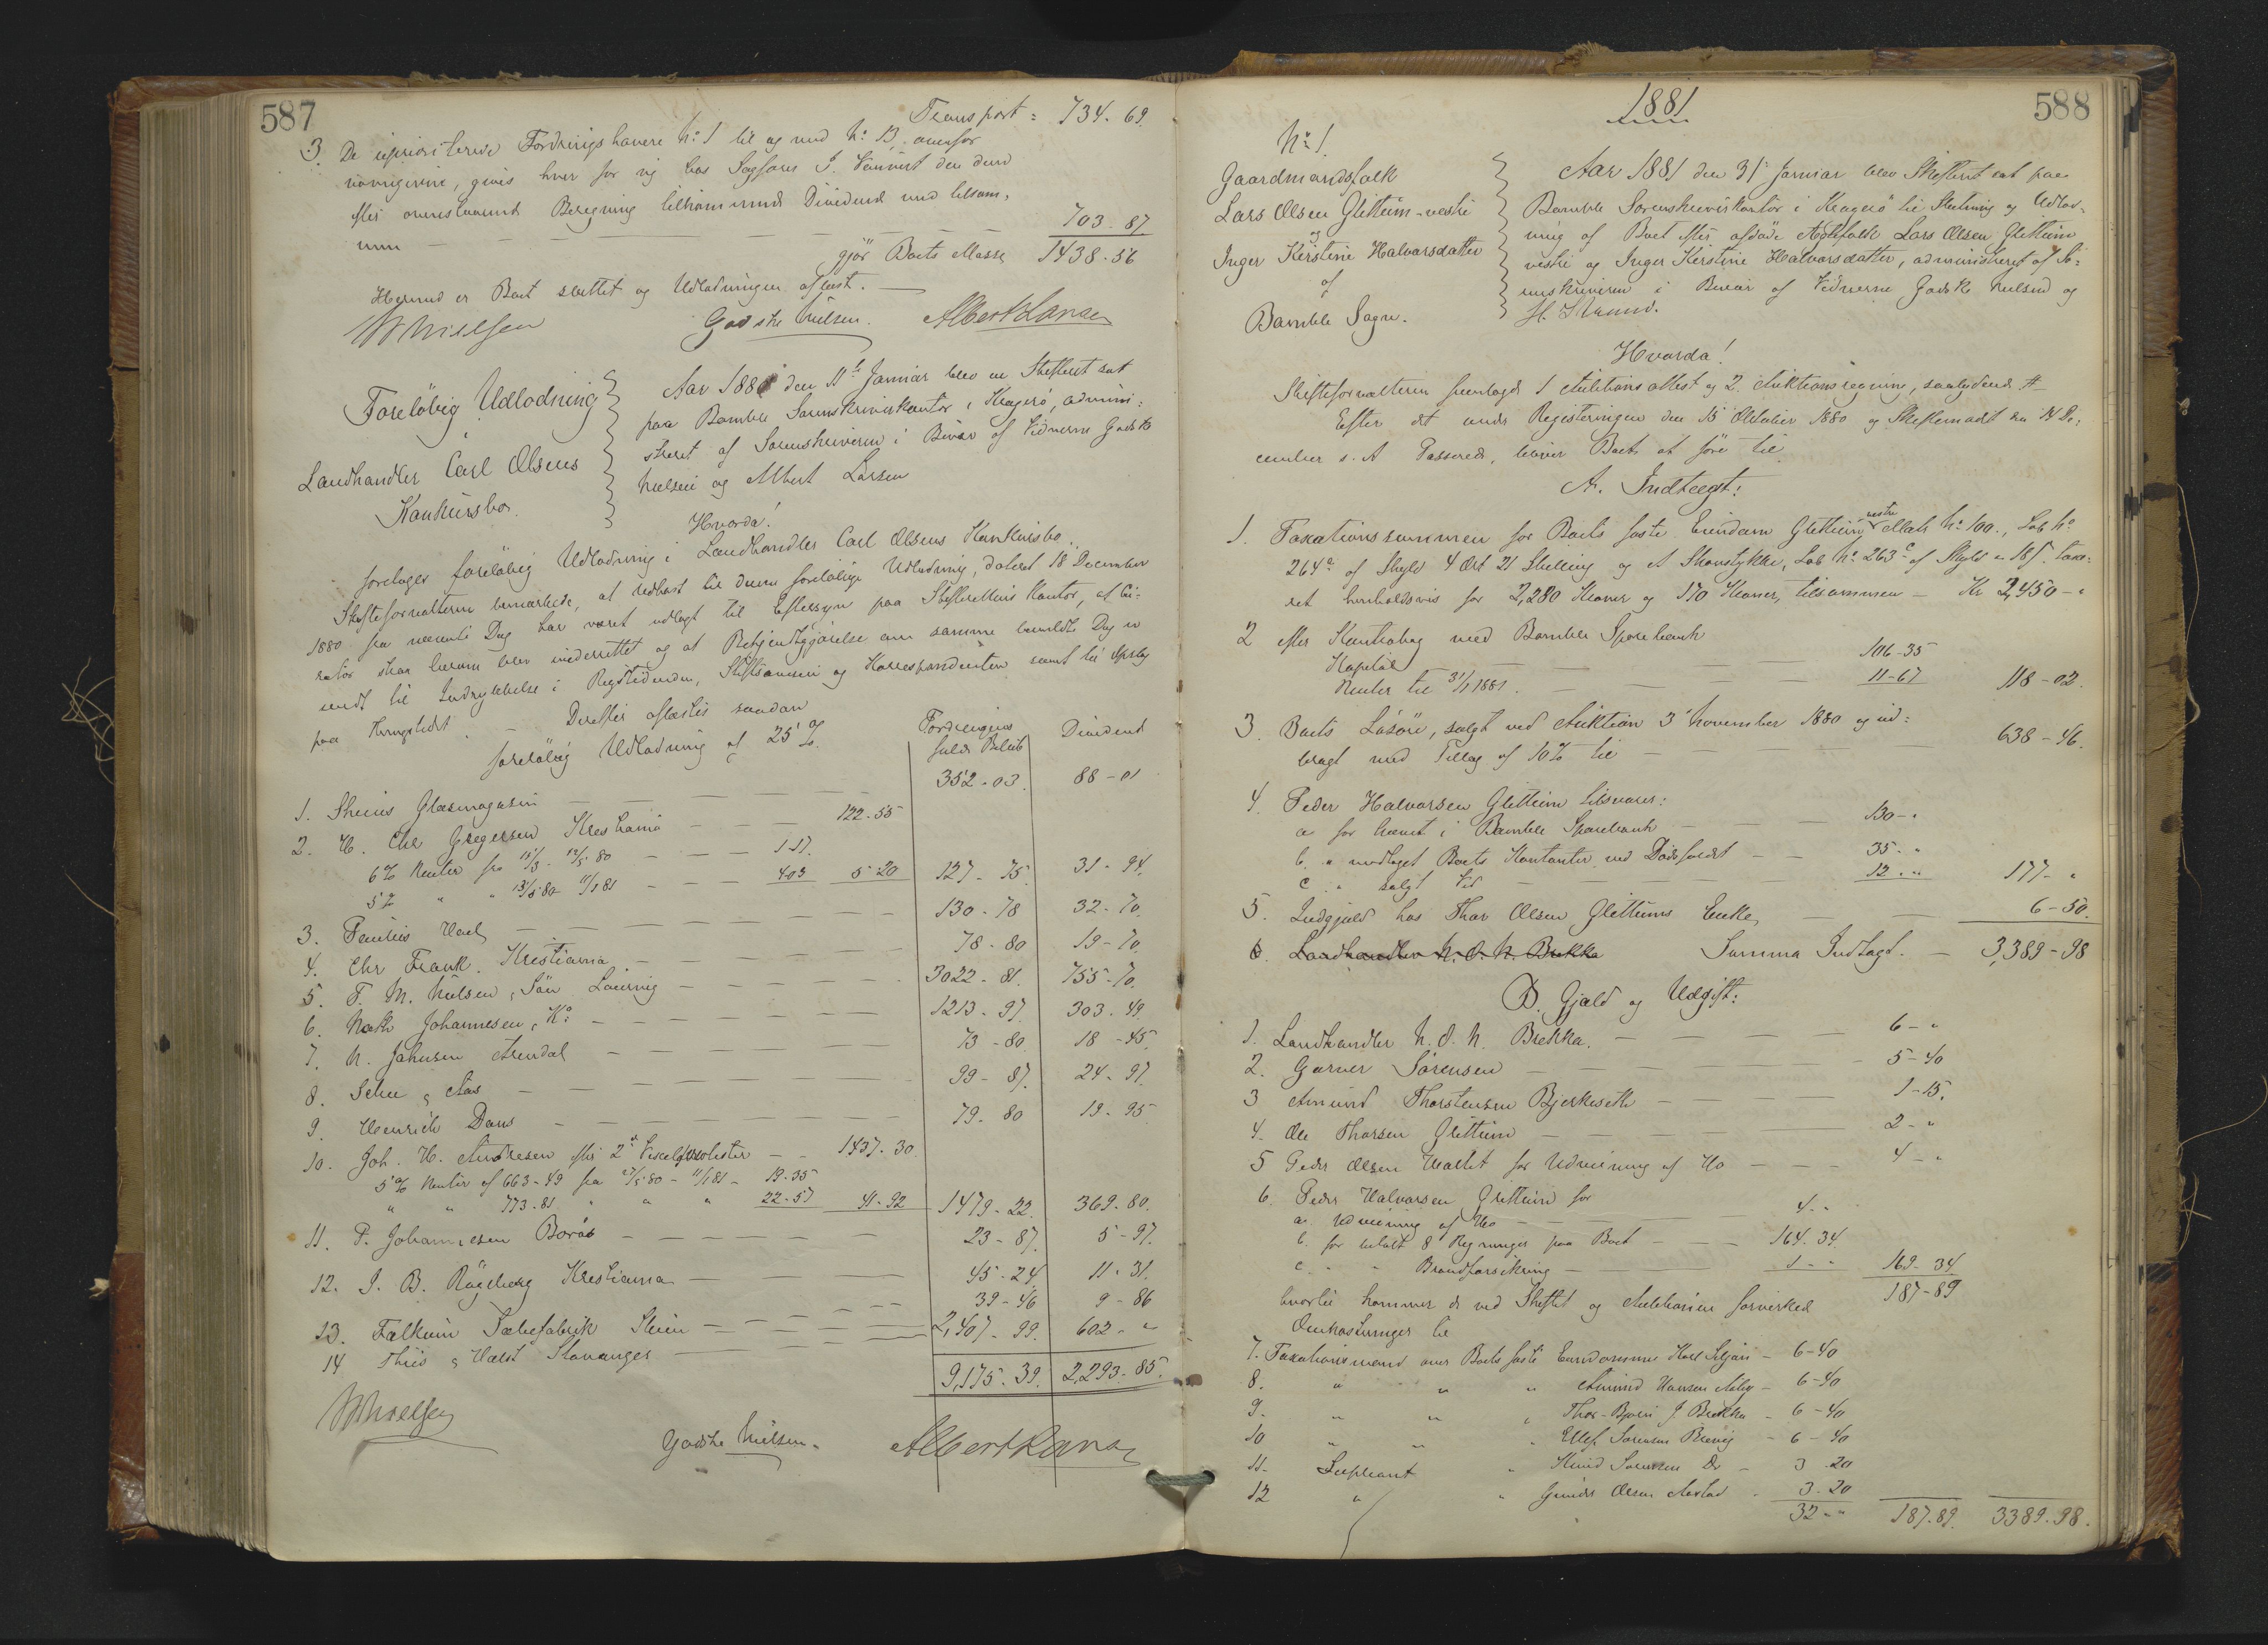 587
Transport = 734. 69.
3. De uprioriterede Fordringshavere No 1 til og med No 13 ovenfor
nævngivne, gives hver for sig hos Sagfører J. den dem
efter ovenstaaende Beregning tilkommende Dividende med tilsam-
men — — — 703. 87
gjör Boets Masse 1438-56
Hermed er Boet sluttet og Udlodningen aflæst. —
Nielsen Godske Nielsen. Albert Larsen
Foreløbig Udlodning
i
Landhandler Carl Olsens
Konkursbo.
Aar 1881 den 11te Januar blev en Skifteret sat
paa Bamble Sorenskriverkontor i Kragerø, admini-
streret af Sorenskriveren i Bivær af Vidnerne Godske
Nielsen og Albert Larsen
Hvorda!
foretages foreløbig Udlodning i Landhandler Carl Olsens Konkursbo.
Skifteforvalteren bemærkede, at Udkast til denne foreløbige Udlodning, dateret 18 December
1880 fra nævnte Dag har været udlagt til Eftersyn paa Skifterettens Kontor, at Cu-
rator strax herom blev underrettet og at Bekjendtgjørelse om samme bemeldte Dag er
sendt til Indrykkelse i Rigstidenden, Stiftsavisen og Korrespondenten samt til Opslag
paa Thingledet. Derefter aflæstes saadan
foreløbig Udlodning af 25 %
Fordringens
fulde Beløb Dividend
1. Skiens Glasmagasin — — — 352-03. 88-01
2. H. Chr Gregersen Kristiania — — 122-55
6% Renter fra 15/3 - 12/5 80 — — 1-17.
5% " " 13/5 80 - 11/1 81 — — 403 5-20 127-75 31-94.
3. Paulus — — — 130-78 32-70.
4. Chr Frank. Kristiania — — — 78-80 19-70.
5. F. M. Nielsen & Søn Laurvig — — — 3022-81. 755-70.
6. Math Johannesen & Ko: — — — 1213-97. 303-49.
7. N. Johnsen Arendal — — — 73-80. 18-45.
8. Schee & Aas — — — 99-87. 24-97.
9. Henrich Dans — — — 79-80 19-95
10. Joh. H. Andresen efter 2de Vexelprotester — 1437-30.
5% Renter af 663-49 fra 27/5 80 - 11/1 81 — 19-35
" " 773-81 " " " 22-57 41-92 1479-22. 369-80.
11. P. Johannesen Borås — — — 23-87. 5-97.
12. J. B. Kristiania — — 45-24. 11-31.
39-46 9-86
13. Falkum Sæbefabrik Skien — — — 2,407-99. 602-"
14 Thiis & Stavanger — — —
9,175-39. 2,293-85.
Nielsen
Godske Nielsen. Albert Larsen
588
1881
No 1.
Gaardmandsfolk
Lars Olsen Glittum-vestre
og
Inger Kirstine Halvorsdatter
af
Bamble Sogn.
Aar 1881 den 31te Januar blev Skifteret sat paa
Bamble Sorenskriverkontor i Kragerø til Slutning og Udlod-
ning af Boet efter afdøde Ægtefolk Lars Olsen Glittum
vestre og Inger Kirstine Halvorsdatter, administreret af So-
renskriveren i Bivær af Vidnerne Godske Nielsen og
H. Strand.
Hvorda!
Skifteforvalteren fremlagde 1 Auktionsattest og 2 Auktionsregning, saalydende #
Efter det under Registeringen den 15 Oktober 1880 og Skiftemødet den 14 De-
cember s. A Passerede, bliver Boets at føre til
A. Indtægt:
1. Taxationssummen for Boets faste Eiendom Glittum vestre Matr No 100., Løb No
264a af Skyld 4 Ort 21 Skilling og et Skovstykke, Løb No 263c af Skyld 18 s. taxe-
ret henholdsvis for 2,280 Kroner og 170 Kroner, tilsammen — Kr 2,450-"
2 efter Kontrabog med Bamble Sparebank
Kapital — — — 106-35
Renter til 31/1 1881. — — — 11-67 118-02.
3. Boets Løsøre, solgt ved Auktion 3 November 1880 og ud-
bragt med Tillæg af 10% til — — 638-46.
4. Peder Halvorsen Glittum tilsvarer:
a for hævet i Bamble Sparebank — — 130-"
b. " modtaget Boets Kontanter ved Dødsfaldet — — 35-"
c. " solgt Ved — — — 12-" 177-"
5. Indgjæld hos Thor Olsen Glittums Enke — — 6-50.
6. Landhandler N. O. N. Brekka Summa Indtægt. — 3,389-98
B. Gjæld og Udgift:
1. Landhandler N. O. N. Brekka. — — — 6-"
2. Garver Sørensen — — — 5-40
3 Amund Thorstensen Bjerkeseth — — 1-15.
4. Ole Thorsen Glittum — — — 2-"
5 Peder Olsen Hvalet for Udveining af Hø — — 4-"
6. Peder Halvorsen Glittum for
a. Udveining af Hø — — 4-"
b. for betalt 8 Regninger paa Boet — — 164-34
c. " " Brandforsikring — — 1-" 169-34
187-89
hvortil kommer de ved Skiftet og Auktionen forvirkede
Omkostninger til
7. Taxationsmænd over Boets faste Eiendomme — 6-40
8. " " " Amund Hansen — 6-40
9. " " " Thor-Bjørn J Brekka — 6-40
10 " " " Ellef Sørensen — 6-40
11. Supleant " Knud Sørensen Do — 3.20
12 " " Gunder Olsen — 3.20
32-" 187.89. 3389.98.